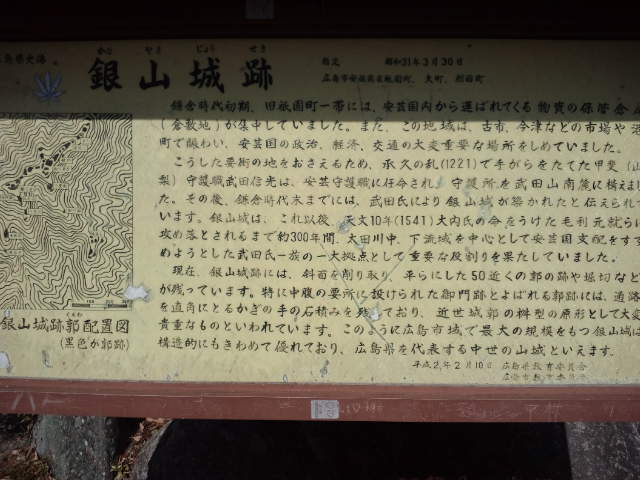 広島県史跡
かな やま じょう せき
銀山城跡
指定 昭和31年3月30日
鎌倉時代初期、旧祇園町一帯には、安芸国内から運ばれてくる物資の保管倉
(倉敷地)が集中していました。また、この地域は、古市、今津などの市場や
町で賑わい、安芸国の政治、経済、交通の大変重要な場所をしめていました。
こうした要衝の地をおさえるため、承久の乱(1221)で手がらをたてた甲斐(山
梨)守護職武田信光は、安芸守護職に任命され、守護所を武田山南麓に構えまし
た。その後、鎌倉時代末までには、武田氏により銀山城が築かれたと伝えられて
います。銀山城は、これ以後、天文10年(1541)大内氏の命をうけた毛利元就らに
攻め落とされるまで約300年間、太田川中、下流域を中心として安芸国支配をすす
めようとした武田氏一族の一大拠点として重要な役割を果たしていました。
現在、銀山城跡には、斜面を削り取り、平らにした50近くの郭の跡や堀切など
が残っています。特に中腹の要所に設けられた御門跡とよばれる郭跡には、通路
を直角にとるかぎの手の石積みを残しており、近世城郭の桝型の原形として大変
貴重なものといわれています。このように広島市域で最大の規模をもつ銀山城は、
構造的にもきわめて優れており、広島県を代表する中世の山城といえます。
平成2年2月10日 広島県教育委員会
広島市教育委員会
くるわ
銀山城跡郭配置図
(黒色が郭跡)